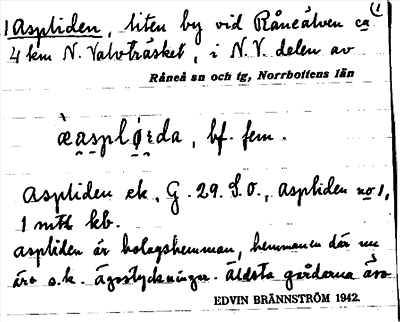 1 Aspliden, liten by vid Råneälven ca (1
4 km N. Valvträsket, i N.V. delen av
Råneå sn och tg, Norrbottens län
bf. fem.
Aspliden ek, G. 29. S.O., Aspliden no 1,
1 mtl kb.
Aspliden är bolagshemman, hemmanen där nu
äro s.k. ägostyckningar. Äldsta gårdarna äro
EDVIN BRÄNNSTRÖM 1942.